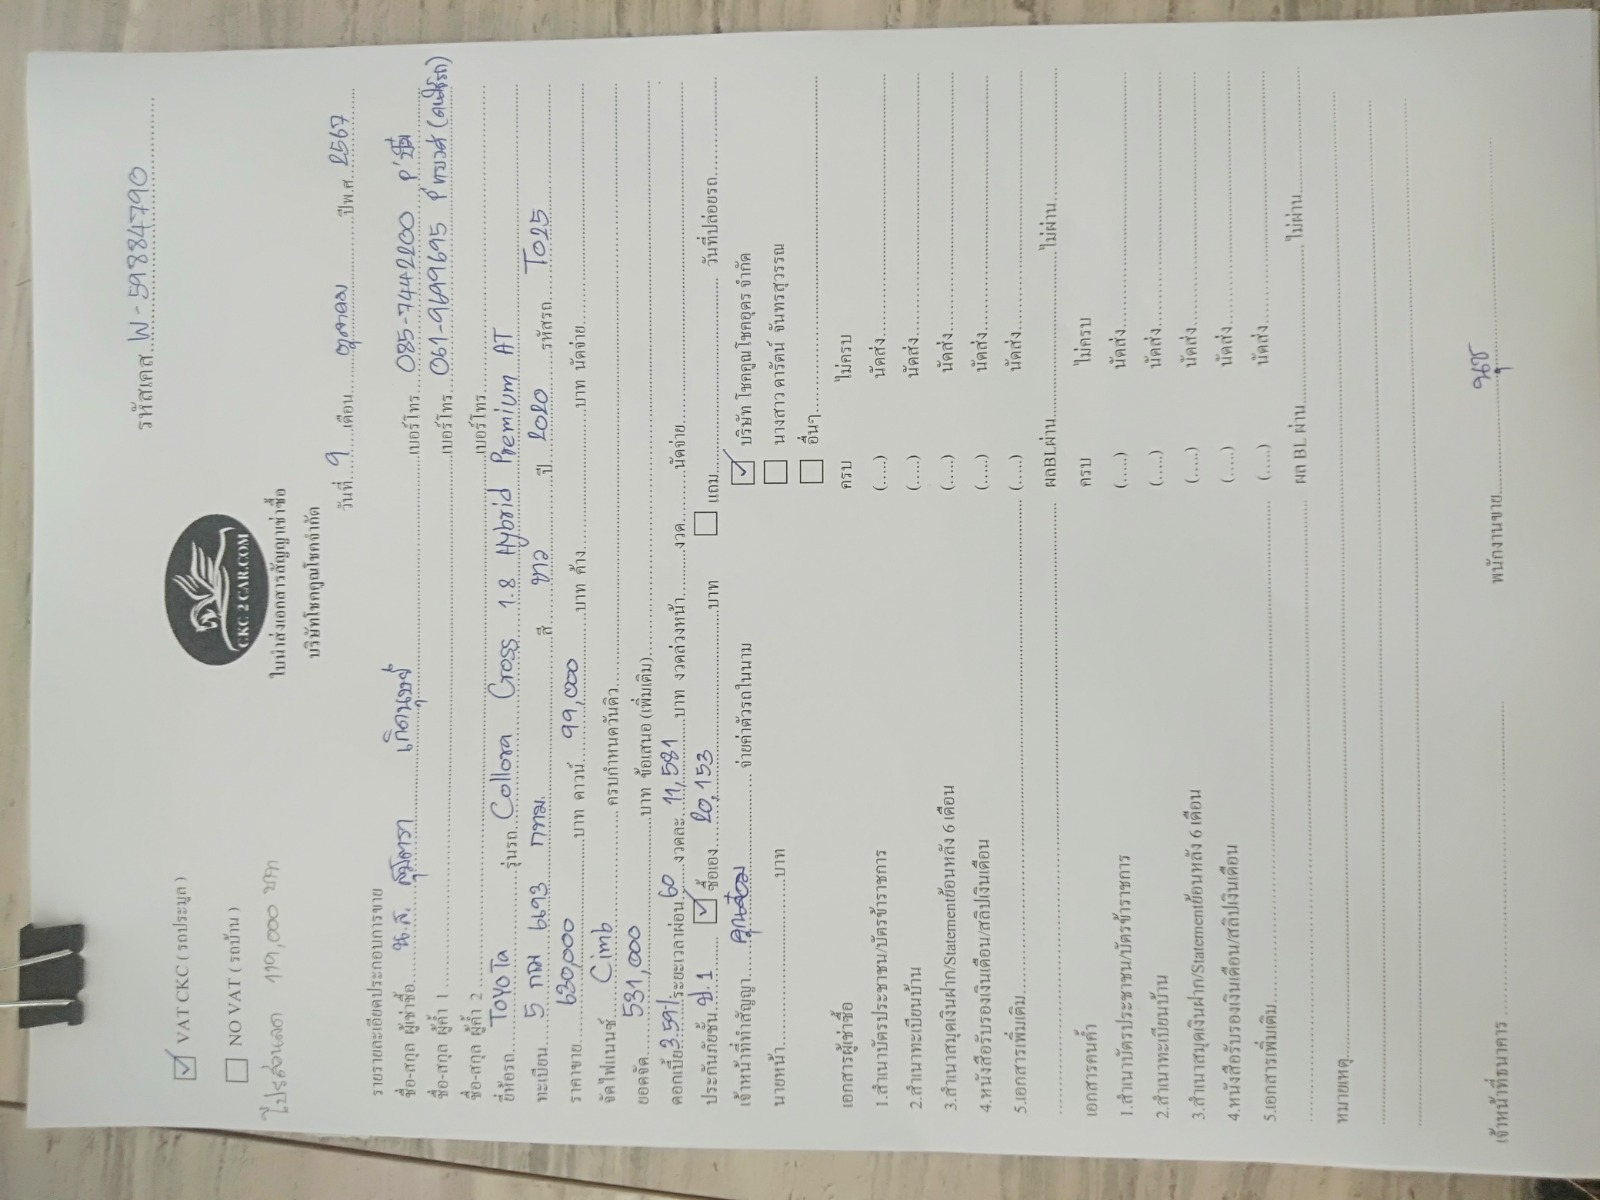 รหัสเคส W-59884790
VAT CKC ( รถประมูล )
CKC 2 CAR.COM
NO VAT ( รถบ้าน )
ใบนำส่งเอกสารสัญญาเช่าซื้อ
โปรส่วนลด 119,000 บาท
บริษัทโชคคูณโชคจำกัด
วันที่ 9 เดือน ตุลาคม ปีพ.ศ. 2567
รายรายละเอียดประกอบการขาย
ชื่อ-สกุล ผู้เช่าซื้อ น.ส. เกิดนุชย์ เบอร์โทร 085-7442200
ชื่อ-สกุล ผู้ค้ำ 1 เบอร์โทร 061-9699695
ชื่อ-สกุล ผู้ค้ำ 2 เบอร์โทร
ยี่ห้อรถ TOYOTA รุ่นรถ Collora Cross 1.8 Hybrid Premium AT
ทะเบียน 5 กม 6693 กทม. สี ขาว ปี 2020 รหัสรถ T025
ราคาขาย 630,000 บาท ดาวน์ 99,000 บาท ค้าง บาท นัดจ่าย
จัดไฟแนนซ์ Cimb ครบกำหนดวันดิว
ยอดจัด 531,000 บาท ข้อเสนอ (เพิ่มเติม)
ดอกเบี้ย 3.59% ระยะเวลาผ่อน 60 งวดละ 11,581 บาท งวดล่วงหน้า งวด นัดจ่าย
ประกันภัยชั้น ป.1 ซื้อเอง 20,153 บาท แถม วันที่ปล่อยรถ
เจ้าหน้าที่ทำสัญญา จ่ายค่าตัวรถในนาม บริษัท โชคคูณโชคอุดร จำกัด
นายหน้า บาท นางสาว ดารัตน์ จันทรสุวรรณ
อื่นๆ
เอกสารผู้เช่าซื้อ ครบ ไม่ครบ
1.สำเนาบัตรประชาชน/บัตรข้าราชการ (.....) นัดส่ง
2.สำเนาทะเบียนบ้าน (.....) นัดส่ง
3.สำเนาสมุดเงินฝาก/Statementย้อนหลัง 6 เดือน (.....) นัดส่ง
4.หนังสือรับรองเงินเดือน/สลิปเงินเดือน (.....) นัดส่ง
5.เอกสารเพิ่มเติม (.....) นัดส่ง
ผลBLผ่าน ไม่ผ่าน
เอกสารคนค้ำ ครบ ไม่ครบ
1.สำเนาบัตรประชาชน/บัตรข้าราชการ (.....) นัดส่ง
2.สำเนาทะเบียนบ้าน (.....) นัดส่ง
3.สำเนาสมุดเงินฝาก/Statementย้อนหลัง 6 เดือน (.....) นัดส่ง
4.หนังสือรับรองเงินเดือน/สลิปเงินเดือน (.....) นัดส่ง
5.เอกสารเพิ่มเติม (.....) นัดส่ง
ผล BL ผ่าน ไม่ผ่าน
หมายเหตุ
เจ้าหน้าที่ธนาคาร พนักงานขาย นุช